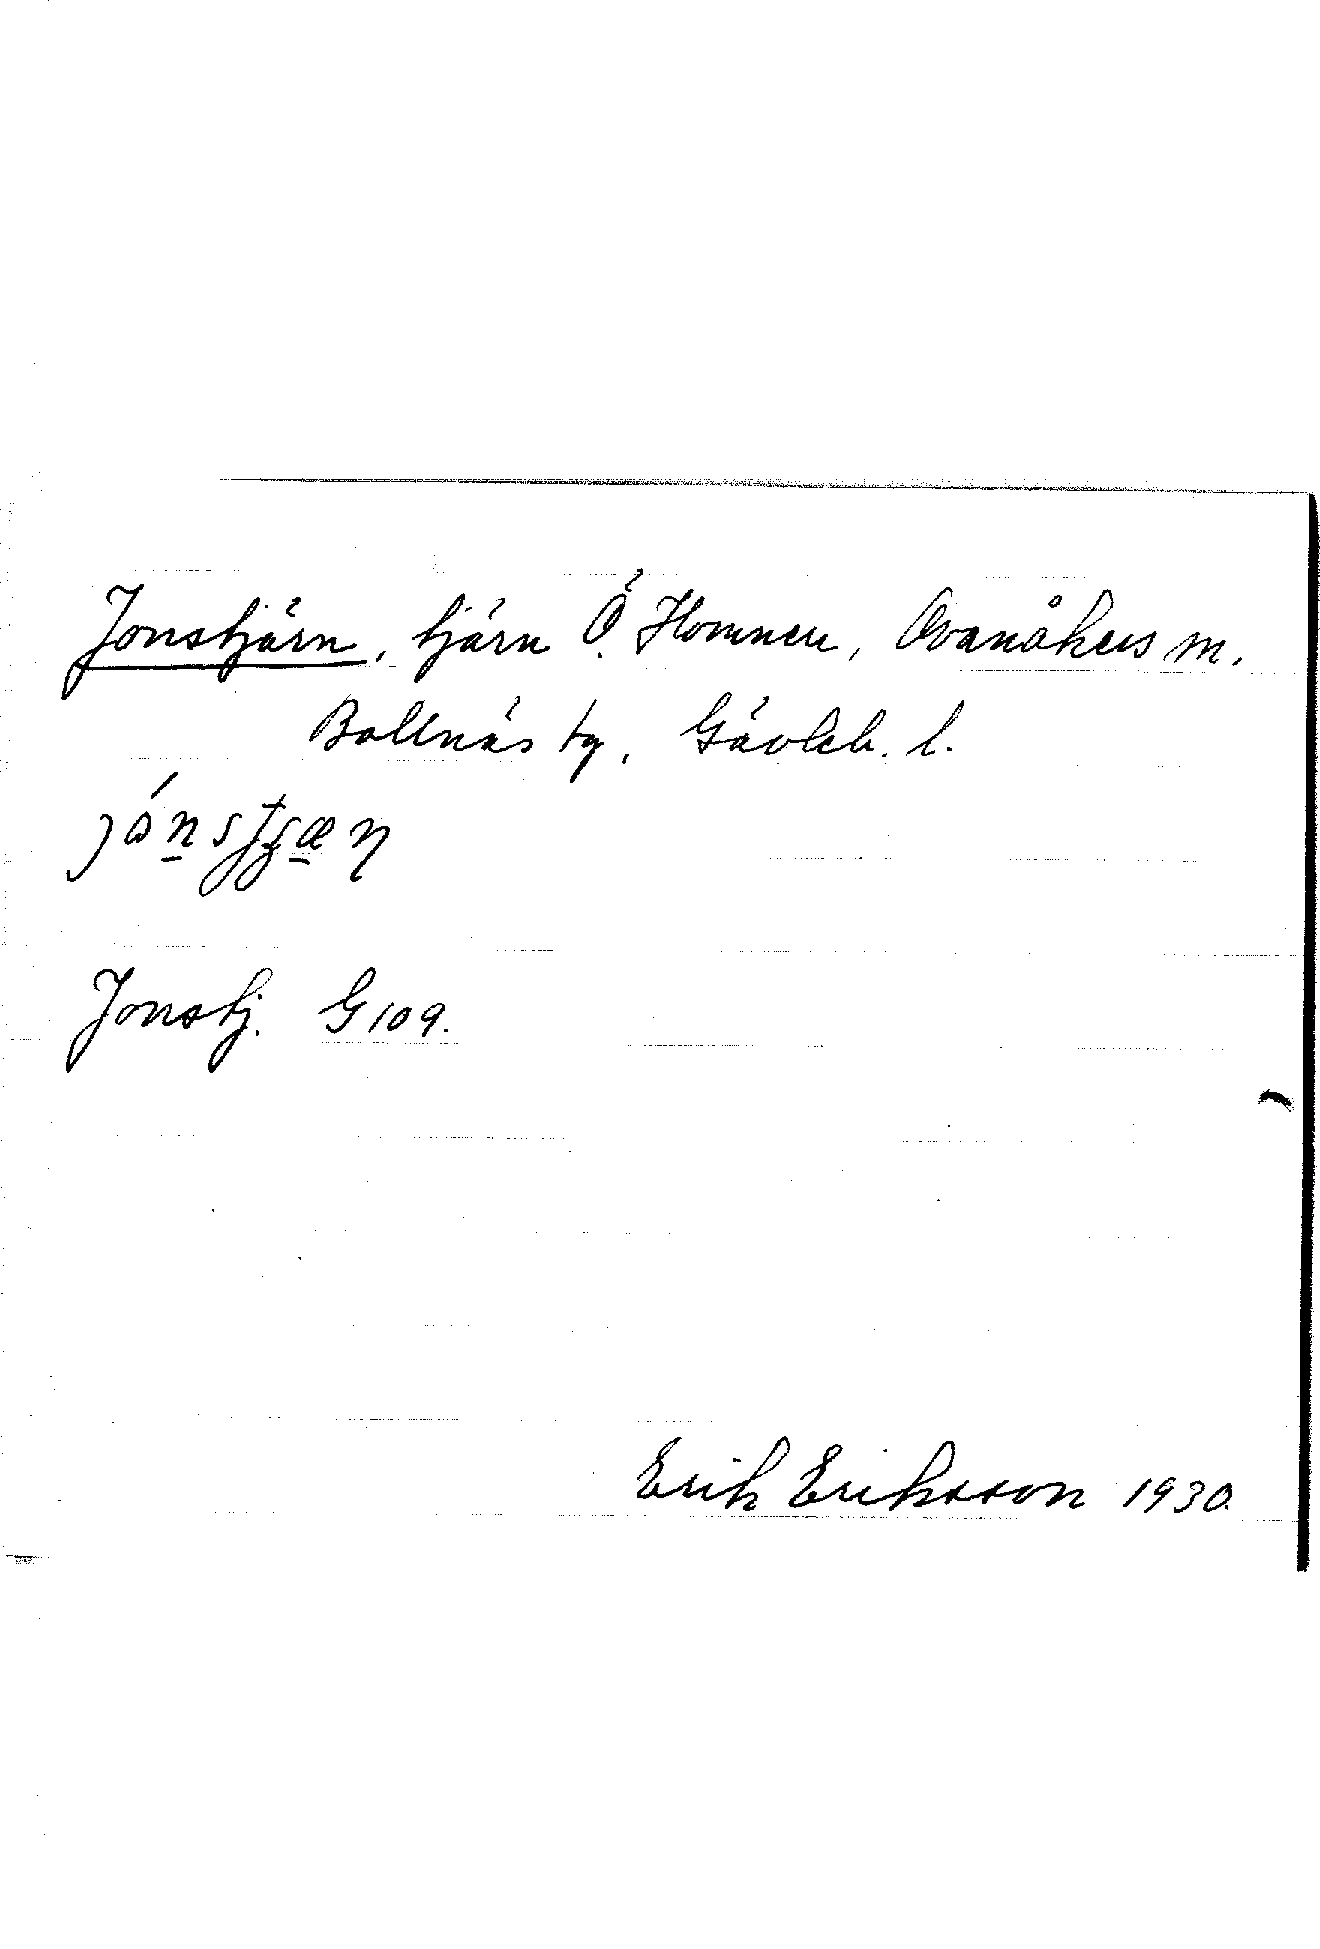 Jonstjärn, tjärn Ö. Homnen, Ovanåkers sn.
Bollnäs tg, Gävleb. l.
Jonstj. G 109.
Erik Eriksson 1930.